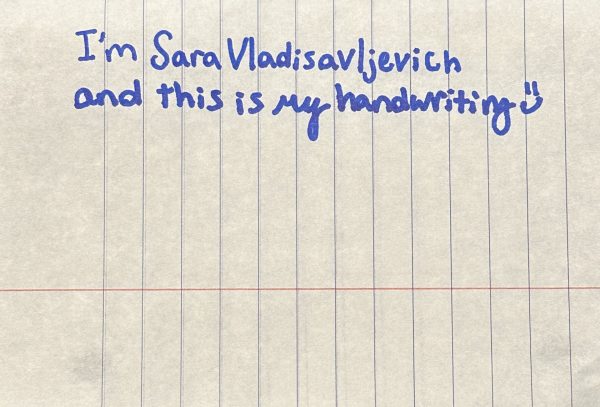 I'm Sara Vladisavljevich
and this is my handwriting :)